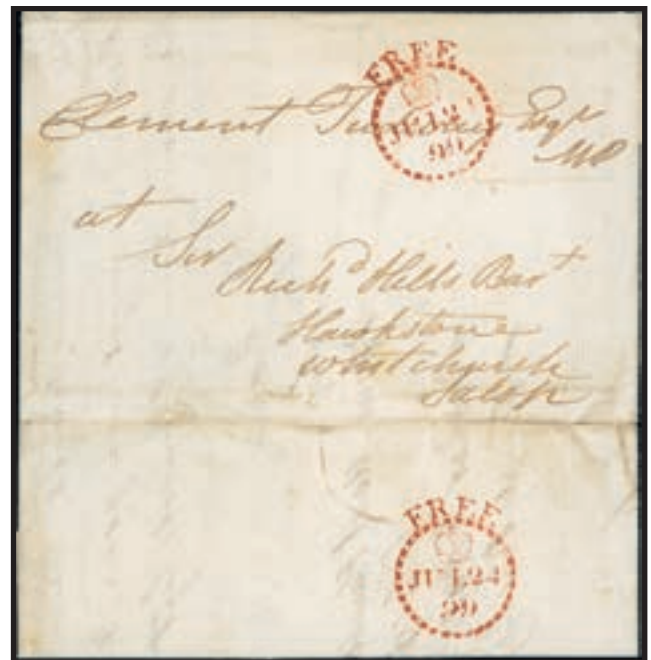 FREE
JU 24
99
Clement Esqr
MP
at
Sir Richd Hills Bart
Hawkstone
Whitchurch
Salop
FREE
JU 24
99